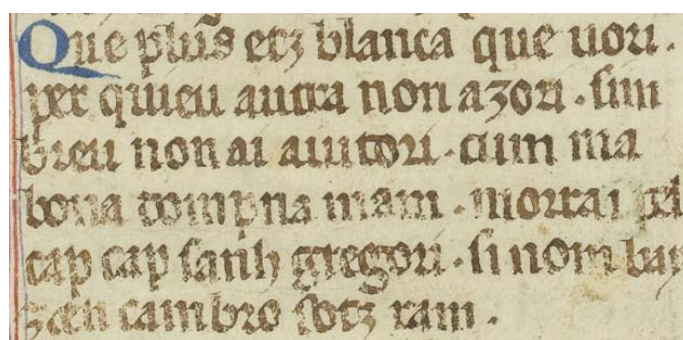 Que plus etz blanca que uori .
per quieu autra non azori . sim
breu non ai aiutori . cum ma
bona dompna mam . morrai pel
cap cap sanh gregori . si nom bay
zaen cambro sotz ram .